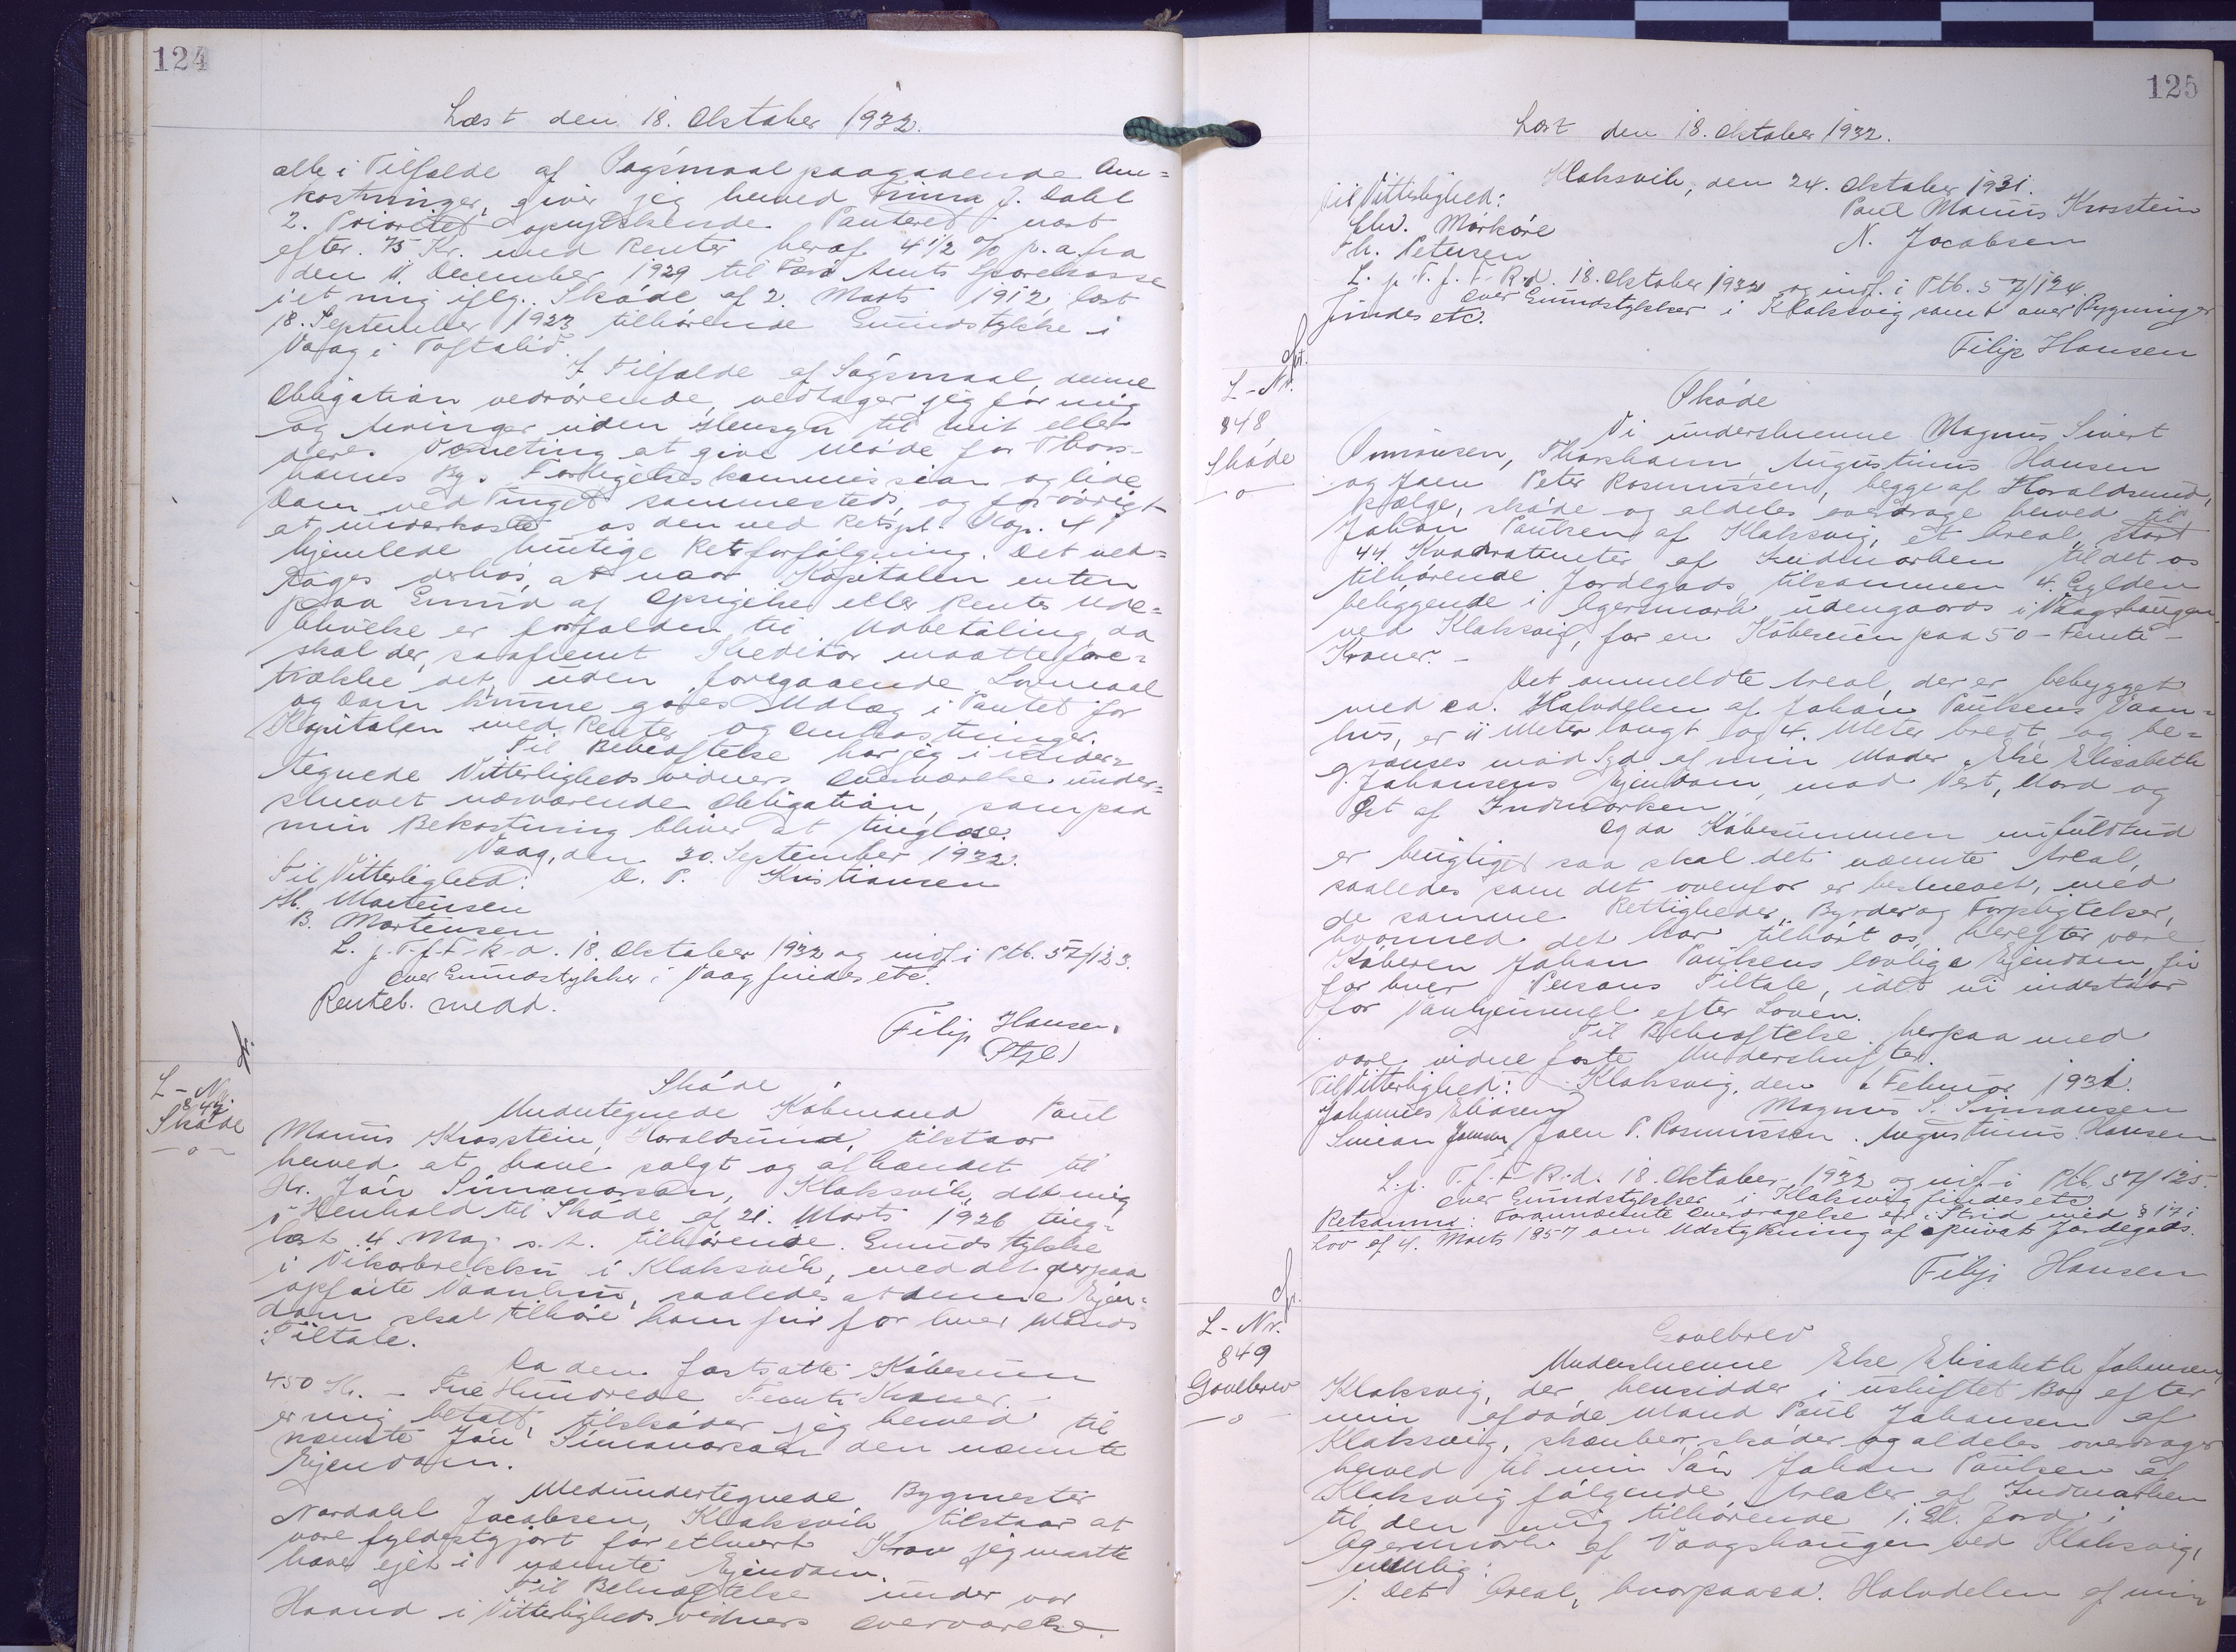 124
Læst den 18. Oktober 1932.
alle i Tilfælde af Søgsmaal paagaaende Om=
kostninger, giver jeg herved Finna J. Dahl
2. Prioritet oprykkende Panteret næst
efter. 75 Kr. med Renter heraf 4 1/2 % p. a. fra
den 11. December 1929 til Færø Amts Sparekasse
i et mig iflg. Skøde af 2. Marts 1912, læst
18. September 1923 tilhørende Grundstykke i
Vaag i Toftalid.
I Tilfælde af Søgsmaal, denne
Obligation vedrørende, vedtager jeg for mig
og Arvinger uden Hensyn til mit eller
deres Værneting at give Møde for Thors-
havns By's Forligelseskommission og lide
Dom ved Tinget sammesteds, og forøvrigt
at underkaste os den ved Retspl. Kap. 41
hjemlede hurtige Retsforfølgning. Det ved=
tages derhos, at naar Kapitalen enten
paa Grund af Opsigelse eller Rentes Ude=
blivelse er forfalden til Udbetaling, da
skal der, saafremt Kreditor maatte fore=
trække det, uden foregaaende Lovmaal
og Dom kunne gøres Udlæg i Pantet for
Kapitalen med Renter og Omkostninger.
Til Bekræftelse har jeg i under=
tegnede Vitterlighedsvidners Overværelse under=
skrevet nærværende Obligation, som paa
min Bekostning bliver at tinglæse.
Vaag, den 30. September 1932.
Til Vitterlighed: O. P. Kristiansen
M. Mortensen
B. Mortensen
L. j. T. f. F. R. d. 18. Oktober 1932 og indf. i Ptb. 57/123.
Over Grundstykker i Vaag findes etc.
Renteb. medd.
Filip Hansen.
Stfl)
L-Nr.
847.
Skøde
-o-
Skøde
Undertegnede Købmand Poul
Marius Krosstein, Haraldsund, tilstaar
herved at have solgt og afhændet til
Hr. Jón Simonarson, Klaksvík, det mig
i Henhold til Skøde af 21. Marts 1926 ting=
læst 4. Maj s. A. tilhørende Grundstykke
i Vikarbrekku i Klaksvík, med det derpaa
opførte Vaanhus, saaledes at denne Ejen=
dom skal tilhøre ham fri for hver Mands
Tiltale.
Da den fastsatte Købesum
450 Kr. - Fire Hundrede Femti Kroner -
er mig betalt, tilskøder jeg herved til
nævnte Jón Simonarson den nævnte
Ejendom.
Medundertegnede Bygmester
Nordahl Jacobsen, Klaksvík tilstaar at
være fyldestgjort for ethvert Krav jeg maatte
have ejet i nævnte Ejendom.
Til Bekræftelse under vor
Haand i Vitterlighedsvidners Overværelse.
125
Læst den 18. Oktober 1932.
Klaksvík, den 24. Oktober 1931.
Til Vitterlighed: Poul Marius Krosstein
Edv. Mørkøre N. Jacobsen
Th. Petersen
L. j. T. f. F. R. d. 18. Oktober 1932 og indf. i Ptb. 57/124.
Over Grundstykker i Klaksvig samt over Bygninger
findes etc.
Filip Hansen
L-Nr.
848
Skøde
-o-
Skøde
Vi underskrevne Magnus Sivert
Simonsen, Thorshavn, Augustinus Hansen
og Joen Peter Rasmussen, begge af Haraldsund,
sælge, skøde og aldeles overdrage herved til
Johan Poulsen af Klaksvig, et Areal, stort
44. Kvadratmeter af Indmarken til det os
tilhørende Jordegods, tilsammen 4. Gylden
beliggende i Agersmark udengaards i Vaagshaugen
ved Klaksvig, for en Købesum paa 50 - Femti -
Kroner. -
Det ommeldte Areal, der er bebygget
med ca. Halvdelen af Johan Poulsens Vaan=
hus, er 11 Meter langt og 4. Meter bredt, og be=
grænses mod Syd af min Moder Else Elisabeth
Johansens Ejendom, mod Vest, Nord og
Øst af Indmarken.
Og da Købesummen nu fuldtud
er berigtiget saa skal det nævnte Areal,
saaledes som det ovenfor er beskrevet, med
de samme Rettigheder, Byrder og Forpligtelser,
hvormed det har tilhørt os, herefter være
Køberen Johan Poulsens lovlige Ejendom, fri
for hver Persons Tiltale, idet vi indestaar
for Vanhjemmel efter Loven.
Til Bekræftelse herpaa med
vore vidnefaste Underskrifter.
Til Vitterlighed: Klaksvig, den 6 Februar 1931.
Johannes Eliasen Magnus S. Simonsen
Simian Joensen Joen P. Rasmussen. Augustinus Hansen
L. j. T. f. F. R. d. 18. Oktober 1932 og indf. i Ptb. 57/125.
Over Grundstykker i Klaksvig findes etc.
Retsanm: Forannævnte Overdragelse er i Strid med § 17 i
Lov af 4. Marts 1857 om Udstykning af privat Jordegods.
Filip Hansen
L-Nr.
849
Gavebrev
-o-
Gavebrev
Underskrevne Else Elisabeth Johansen,
Klaksvig, der hensidder i uskiftet Bo efter
min afdøde Mand Poul Johansen af
Klaksvig, skænker, skøder og aldeles overdrager
herved til min Søn Johan Poulsen af
Klaksvig følgende Arealer af Indmarken
til den mig tilhørende 1. Gl. Jord i
Agersmark af Vaagshaugen ved Klaksvig,
nemlig:
1. Det Areal, hvorpaa ca. Halvdelen af min